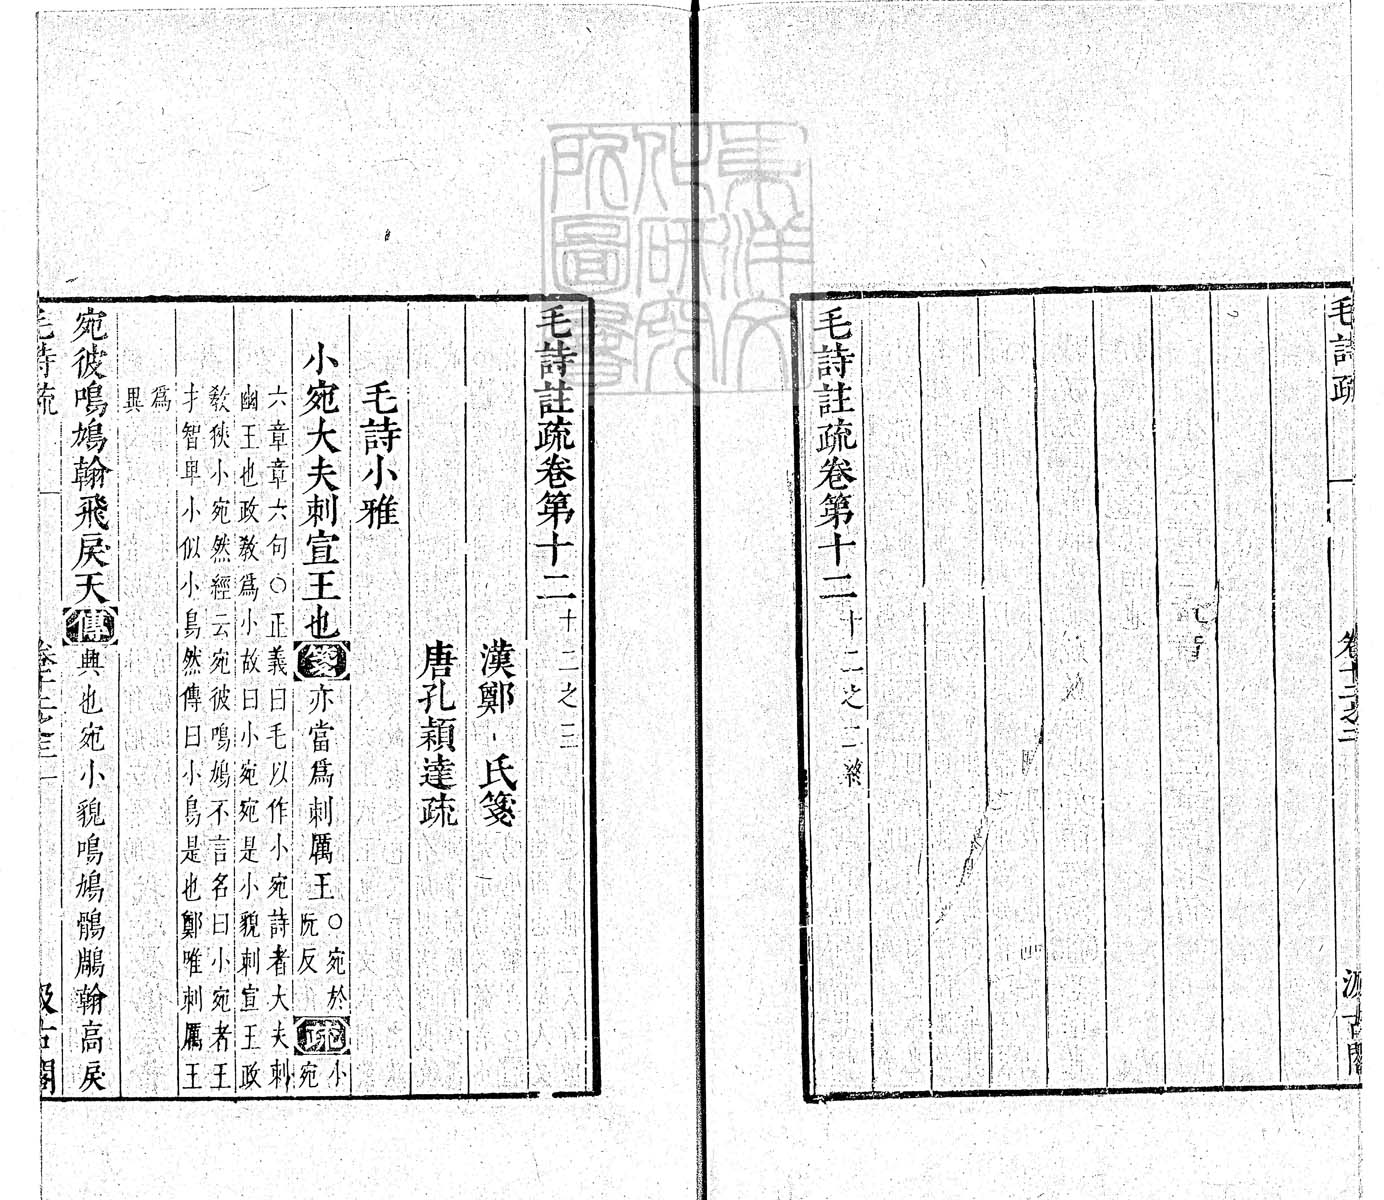 東洋文
化研究
所圖書
毛詩疏
卷十二之二
汲古閣
毛詩註疏卷第十二 十二之二終
毛詩註疏卷第十二 十二之三
漢鄭 氏箋
唐孔穎達疏
毛詩小雅
小宛大夫刺宣王也箋亦當爲刺厲王○宛於阮反疏小宛
六章章六句○正義曰毛以作小宛詩者大夫刺
幽王也政教爲小故曰小宛宛是小貌刺宣王政
教狹小宛然經云宛彼鳴鳩不言名曰小宛者王
才智卑小似小鳥然傳曰小鳥是也鄭唯刺厲王
爲
異
宛彼鳴鳩翰飛戾天傳興也宛小貌鳴鳩鶻鵰翰高戾
毛詩疏
卷十二之三 一
汲古閣